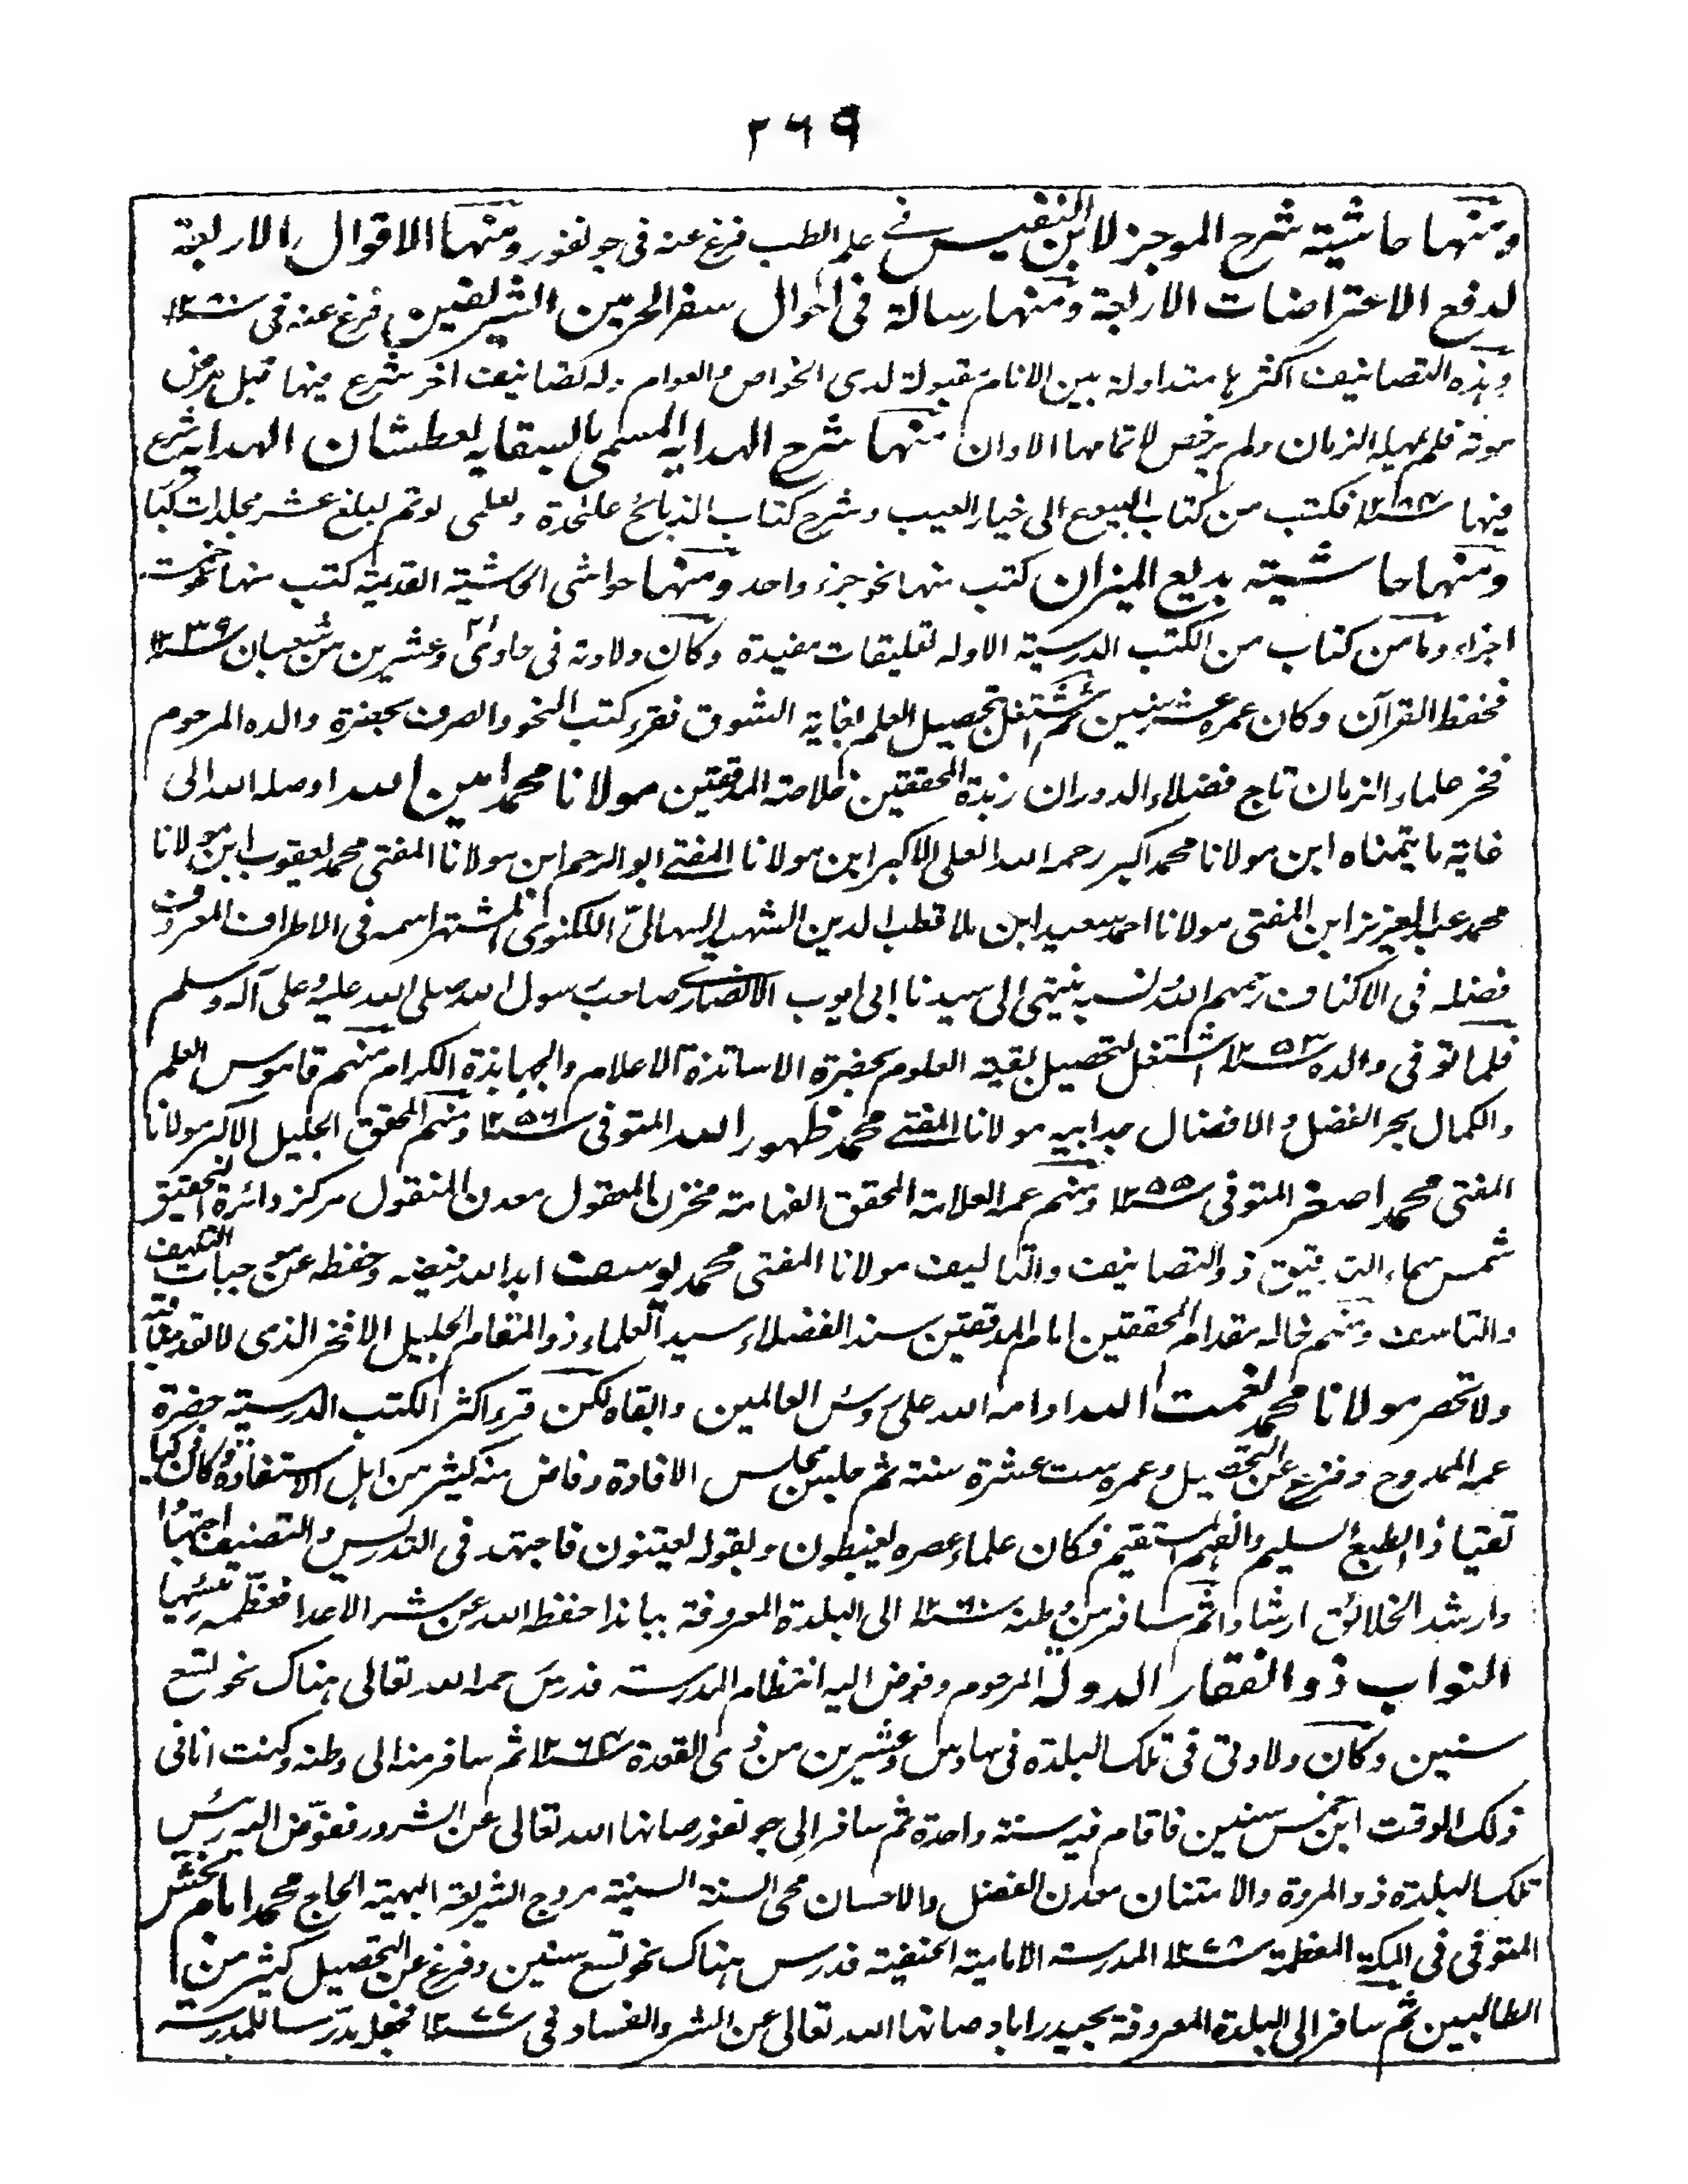 ٢٦٩
ومنها حاشية شرح الموجز لابن النفيس في علم الطب فرغ عنه في جونفور ومنها الاقوال الاربعة
لدفع الاعتراضات الاربعة ومنها رسالة في احوال سفر الحرمين الشريفين فرغ عنه في
وهذه التصانيف اكثرها متداولة بين الانام مقبولة لدى الخواص والعوام وله تصانيف اخر شرع فيها قبل مرض
موته فلم يمهله الزمان ولم يرخص لاتمامها الاوان منها شرح الهداية المسمى بالسقاية لعطشان الهداية شرع
فيها فكتب من كتاب البيوع الى خيار العيب وشرح كتاب الذبائح علٰحدة ولعلمى لو تم لبلغ عشر مجلدات كبا
ومنها حاشية بديع الميزان كتب منها نحو جزء واحد ومنها حواشى الحاشية القديمة كتب منها نحو ست
اجزاء وما من كتاب من الكتب الدرسية الا وله تعليقات مفيدة وكان ولادته في حادى ٢١ وعشرين من شعبان ١٢٣٩
فحفظ القرآن وكان عمره عشر سنين ثم اشتغل بتحصيل العلم بغاية الشوق فقرء كتب النحو والصرف بحضرة والده المرحوم
فخر علماء الزمان تاج فضلاء الدوران زبدة المحققين خلاصة المدققين مولانا محمد امين الله اوصله الله الى
غاية ما يتمناه ابن مولانا محمد اكبر رحمه الله العلى الاكبر ابن مولانا المفتے ابو الرحم ابن مولانا المفتى محمد يعقوب ابن مولانا
محمد عبد العزيز ابن المفتى مولانا احمد سعيد ابن ملا قطب الدين الشهيد السهالىّ اللكنوى المشتهر اسمه في الاطراف المعروف
فضله في الاكناف رحمهم الله ونسبه ينتهى الى سيدنا ابى ايوب الانصارے صاحب رسول الله صلى الله عليه وعلى آله وسلم
فلما توفى والده ١٢٥٣ اشتغل لتحصيل بقية العلوم بحضرة الاساتذة الاعلام والجهابذة الكرام منهم قاموس العلم
والكمال بحر الفضل والافضال جد ابيه مولانا المفتے محمد ظهور الله المتوفى ١٢٥٦ ومنهم المحقق الجليل الاكبر مولانا
المفتى محمد اصغر المتوفى ١٢٥٥ ومنهم عمه العلامة المحقق الفهامة مخزن المعقول معدن المنقول مركز دائرة التحقيق
شمس سماء التدقيق ذو التصانيف والتاليف مولانا المفتى محمد يوسف ابد الله فيضه وحفظه عن موجبات التلهف
والتاسف ومنهم خاله مقدام المحققين امام المدققين سند الفضلاء سيد العلماء ذو المقام الجليل الافخر الذى لا تعد مناقبه
ولا تحصر مولانا محمد نعمت الله ادامه الله على رؤس العالمين وابقاه لكن قرء اكثر الكتب الدرسية حضرة
عمه الممدوح وفرغ عن التحصيل وعمره ست عشرة سنة ثم جلس مجلس الافادة وفاض منه كثير من اهل الاستفادة وكان
ذا الطبع السليم والفهم المستقيم فكان علماء عصره يغبطون وبقوله يعتنون فاجتهد في التدريس والتصنيف اجتهادا
وارشد الخلائق ارشادا ثم سافر من وطنه ١٢٦٠ الى البلدة المعروفة بباندا حفظه الله عن شر الاعدا فعظّمه رئيسها
النواب ذو الفقار الدولة المرحوم وفوض اليه انتظام المدرسة فدرس رحمه الله تعالى هناك نحو تسع
سنين وكان ولادتى في تلك البلدة في سادس وعشرين من ذى القعدة ١٢٦٤ ثم سافر منه الى وطنه وكنت انا في
ذلك الوقت ابن خمس سنين فاقام فيه سنة واحدة ثم سافر الى جونفور صانها الله تعالى عن الشرور ففوّض اليه رئيس
تلك البلدة ذو المروة والامتنان معدن الفضل والاحسان محى السنة السنية مروج الشريعة البهية الحاج محمد امام بخش
المتوفى في المكة المعظمة ١٢٧٨ المدرسة الامامية الحنفية فدرس هناك نحو تسع سنين وفرغ عن التحصيل كثير من
الطالبين ثم سافر الى البلدة المعروفة بحيدراباد صانها الله تعالى عن الشر والفساد في ١٢٧٧ فجعل مدرسا للمدرسة